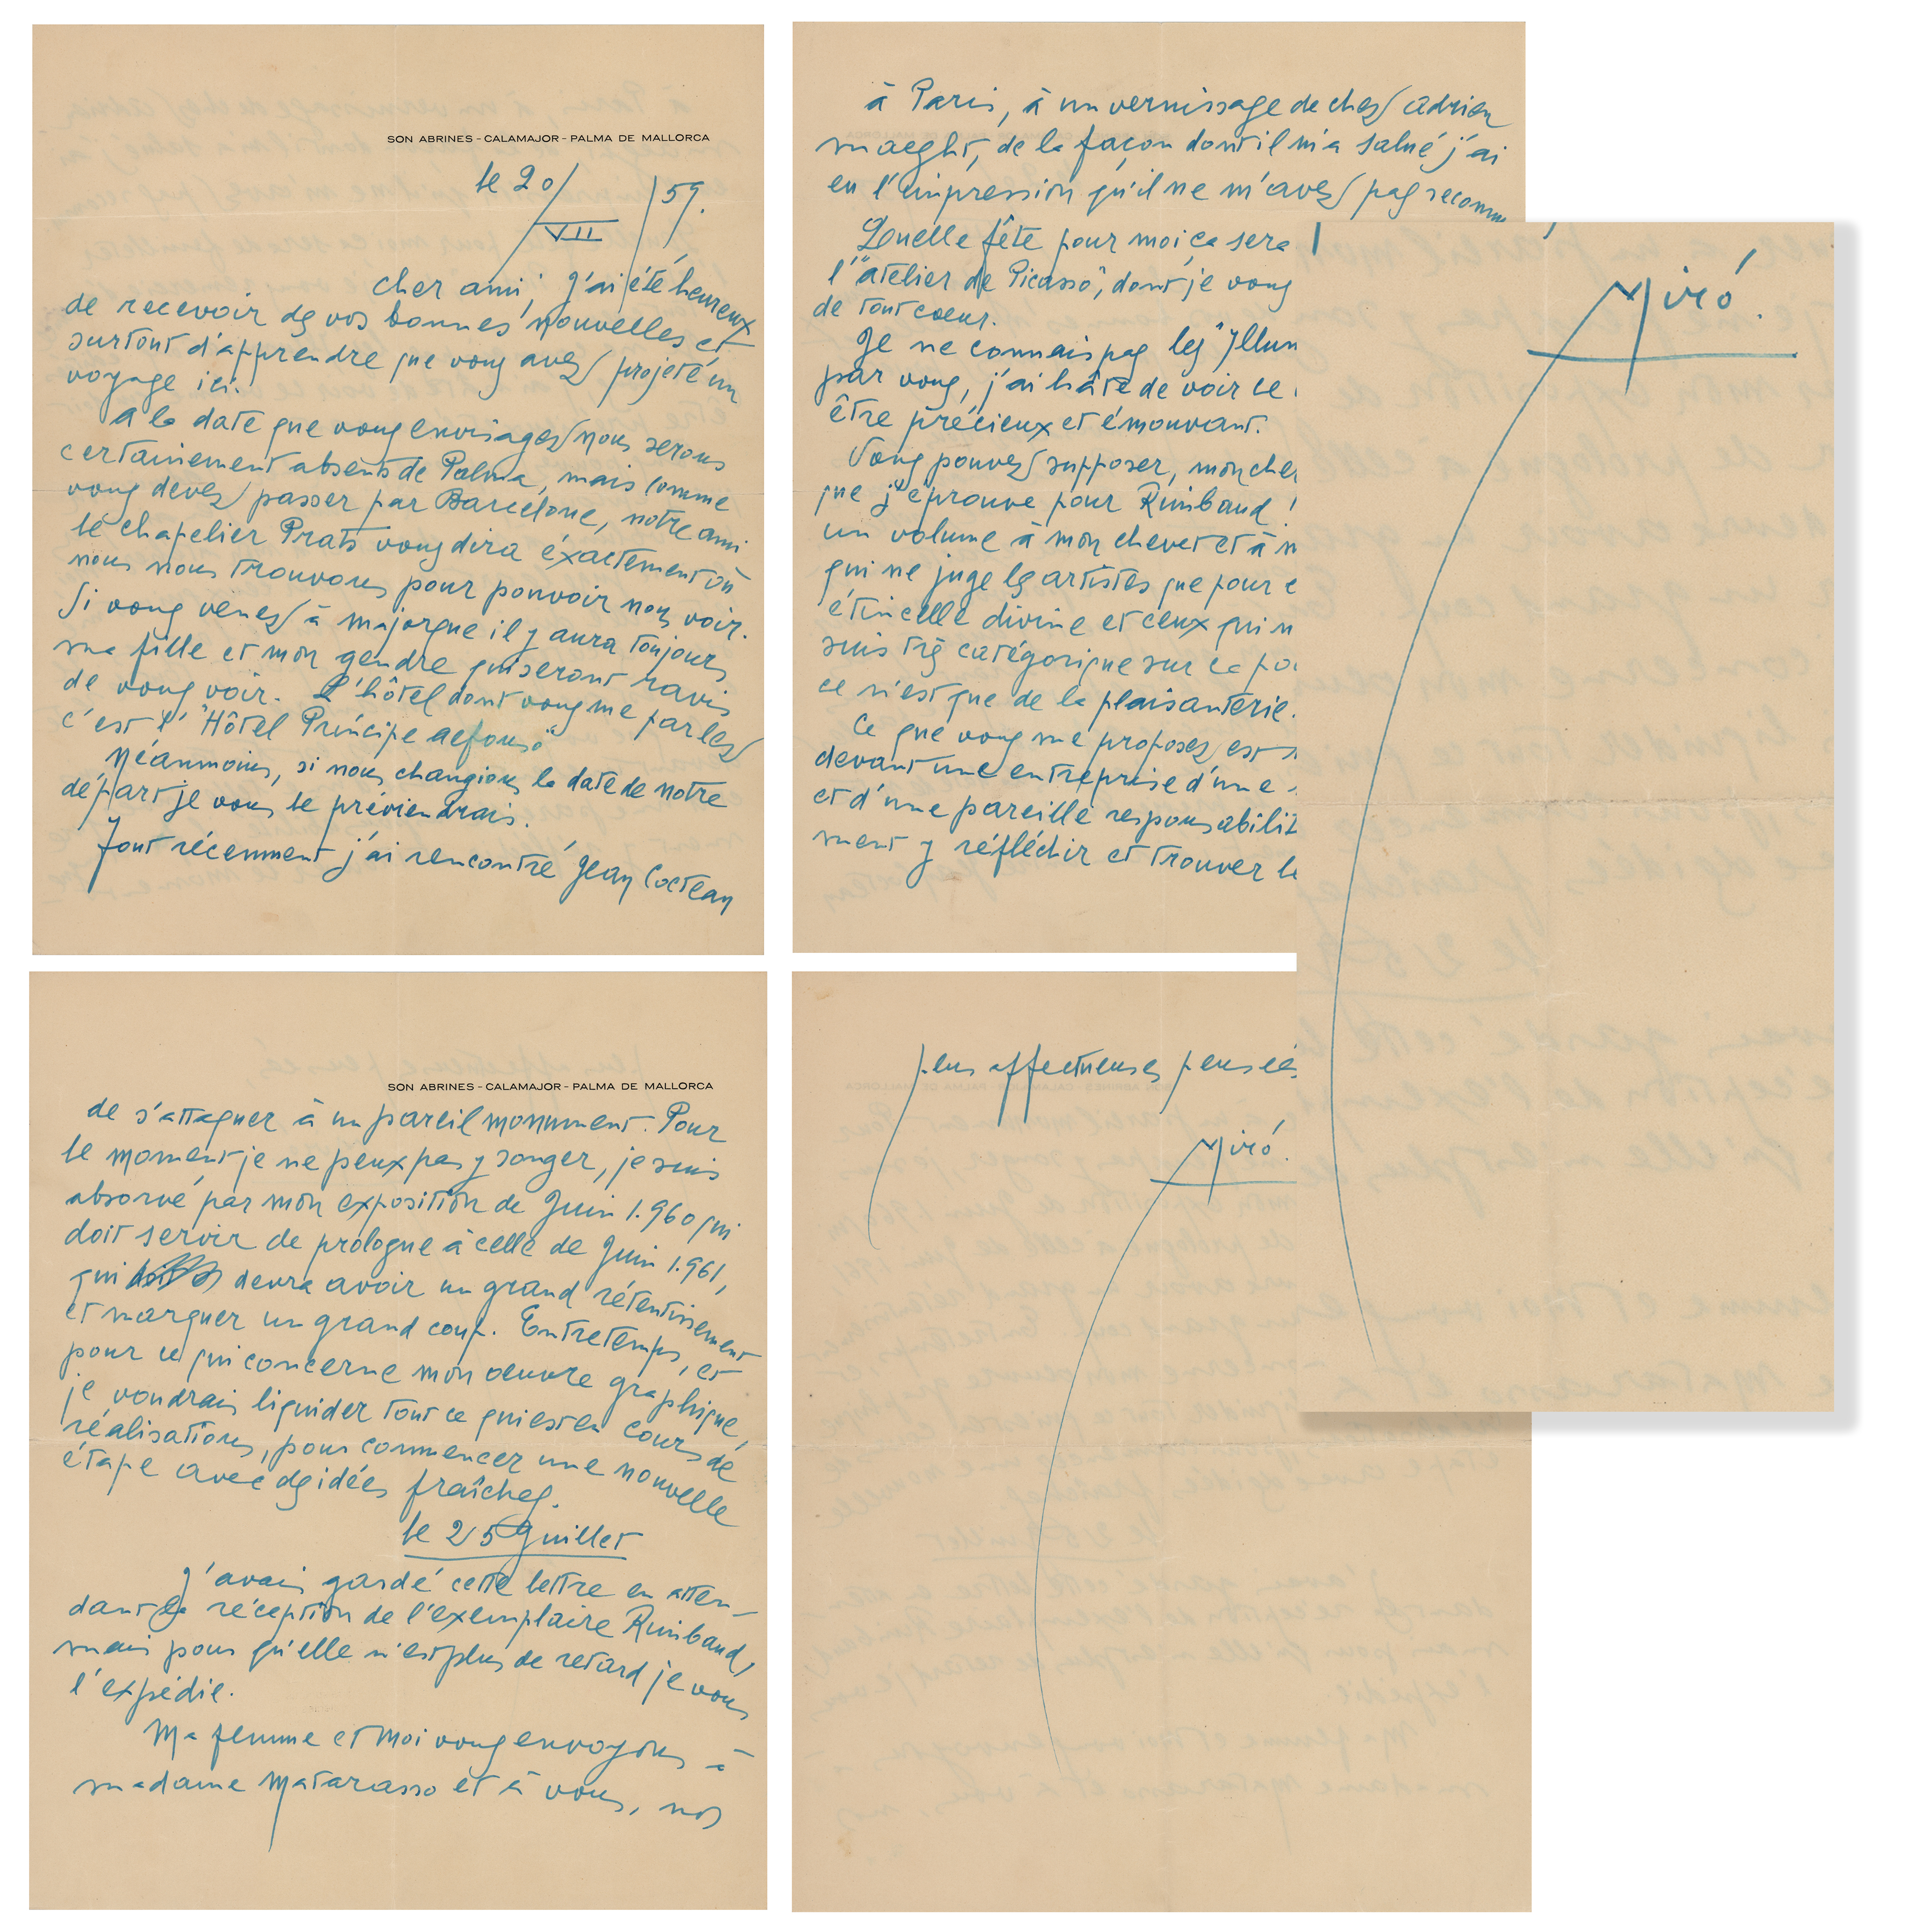 SON ABRINES - CALAMAJOR - PALMA DE MALLORCA
le 20/VII/59.
cher ami, j'ai été heureux
de recevoir de vos bonnes nouvelles et
surtout d'apprendre que vous avez projeté un
voyage ici.
A la date que vous envisagez nous serons
certainement absents de Palma, mais comme
vous devez passer par Barcelone, notre ami
le chapelier Prats vous dira éxactement où
nous nous trouvons pour pouvoir nous voir.
Si vous venez à majorque il y aura toujours
ma fille et mon gendre qui seront ravis
de vous voir. L'hôtel dont vous me parlez
c'est l' "Hôtel Príncipe Alfonso"
Néanmoins, si nous changions la date de notre
départ je vous le préviendrais.
Tout récemment j'ai rencontré Jean Cocteau
à Paris, à un vernissage de chez Adrien
maeght, de la façon dont il m'a salué j'ai
eu l'impression qu'il ne m'avez pas reconnu
Quelle fête pour moi ça sera
l'"atelier de Picasso", dont je vous
de tout coeur.
Je ne connais pas les "Illum
par vous, j'ai hâte de voir ce
être précieux et émouvant.
Vous pouvez supposer, mon cher
que j'éprouve pour Rimbaud !
un volume à mon chevet et à m
qui ne juge les artistes que pour c
étincelle divine et ceux qui n
suis très catégorique sur ce po
ce n'est que de la plaisanterie.
Ce que vous me proposez est
devant une entreprise d'une
et d'une pareille responsabilit
ment y réfléchir et trouver le
SON ABRINES - CALAMAJOR - PALMA DE MALLORCA
de s'attaquer à un pareil monument. Pour
le moment je ne peux pas y songer, je suis
absorvé par mon exposition de Juin 1.960 qui
doit servir de prologue à celle de Juin 1.961,
qui devra avoir un grand rétentissement
et marquer un grand coup. Entretemps, et
pour ce qui concerne mon oeuvre graphique,
je voudrais liquider tout ce qui est en cours de
réalisations, pour commencer une nouvelle
étape avec des idées fraîches.
le 25 Juillet
J'avais gardé cette lettre en atten-
dant la réception de l'exemplaire Rimbaud,
mais pour qu'elle n'est plus de retard je vous
l'expédie.
Ma femme et moi vous envoyons à
madame Matarasso et à vous, nos
plus affectueuses pensées
Miró.
Miró.